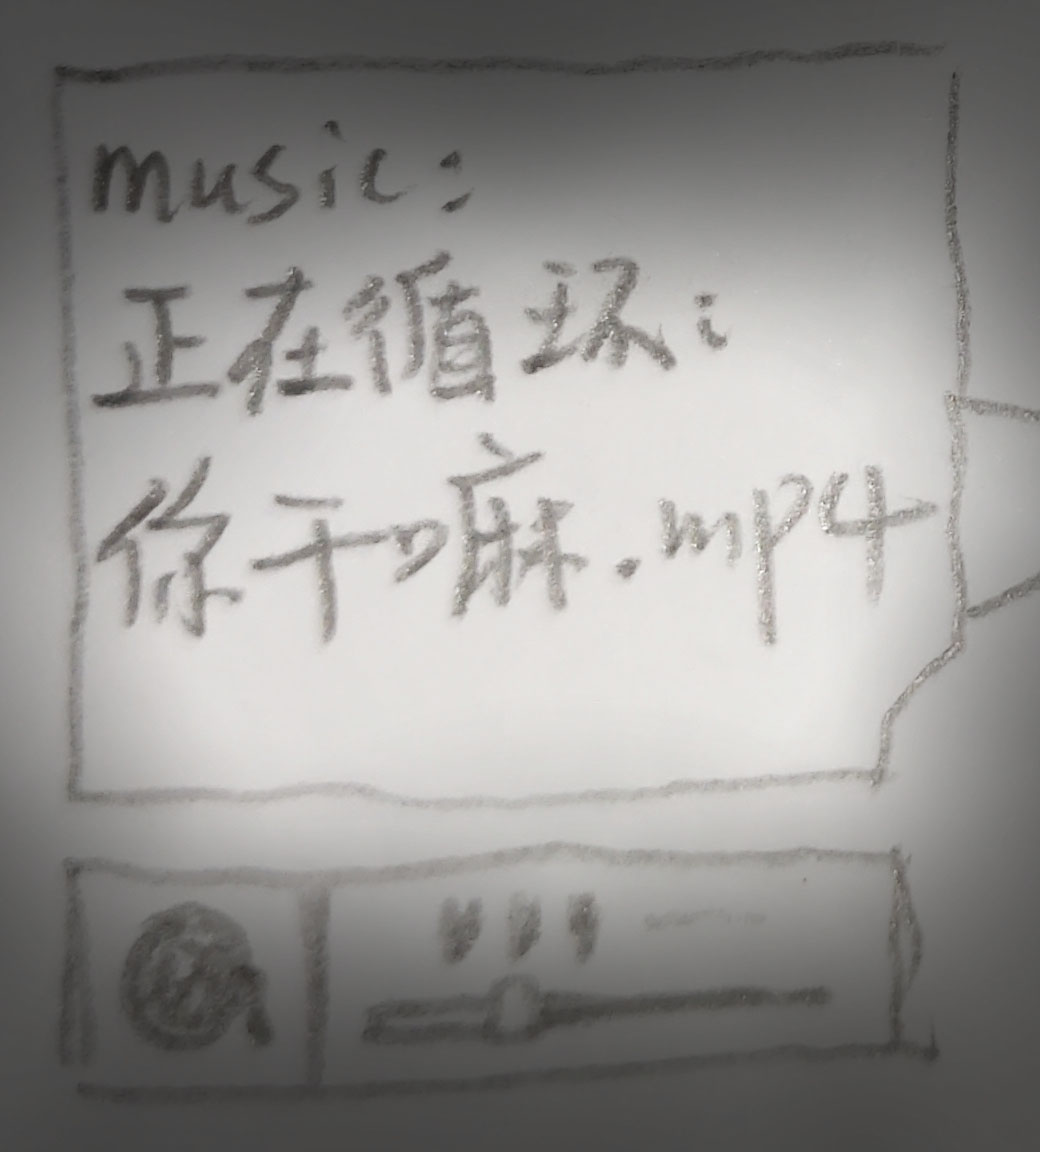 music:
正在循环:
你干嘛.mp4